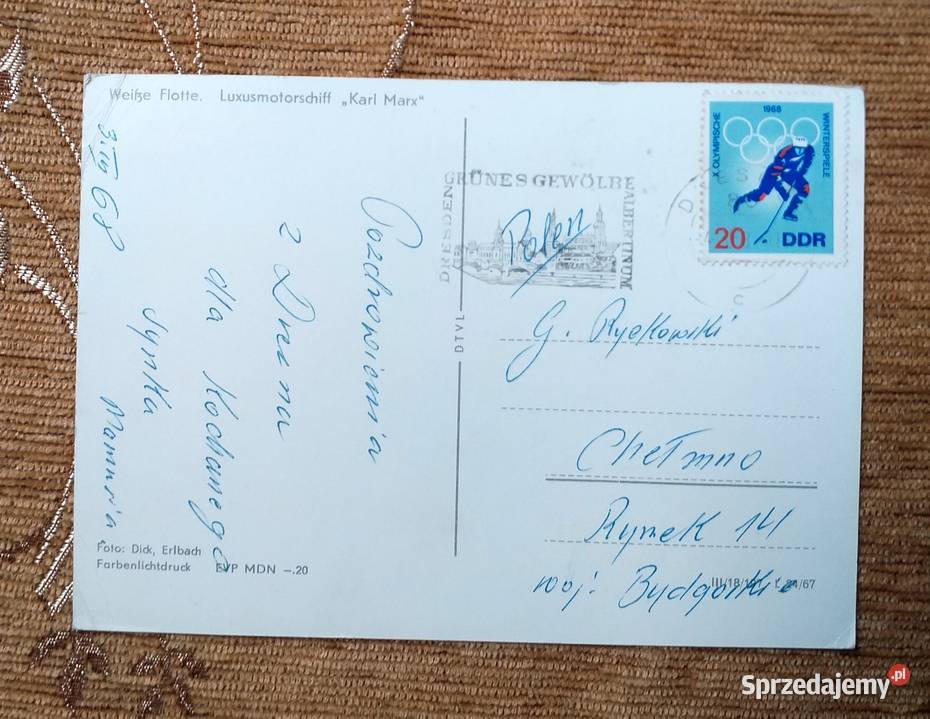 Weiße Flotte. Luxusmotorschiff „Karl Marx"
3.IV 68
Pozdrowienia
z Drezna
dla Kochanego
Synka
Mamusia
Foto: Dick, Erlbach
Farbenlichtdruck EVP MDN –.20
DTVL
DRESDEN
GRÜNES GEWÖLBE
ALBERTINUM
X. OLYMPISCHE
1968
WINTERSPIELE
20 DDR
D
C
Polen
G. Rydkowski
Chełmno
Rynek 14
woj. Bydgoskie
Sprzedajemy.pl